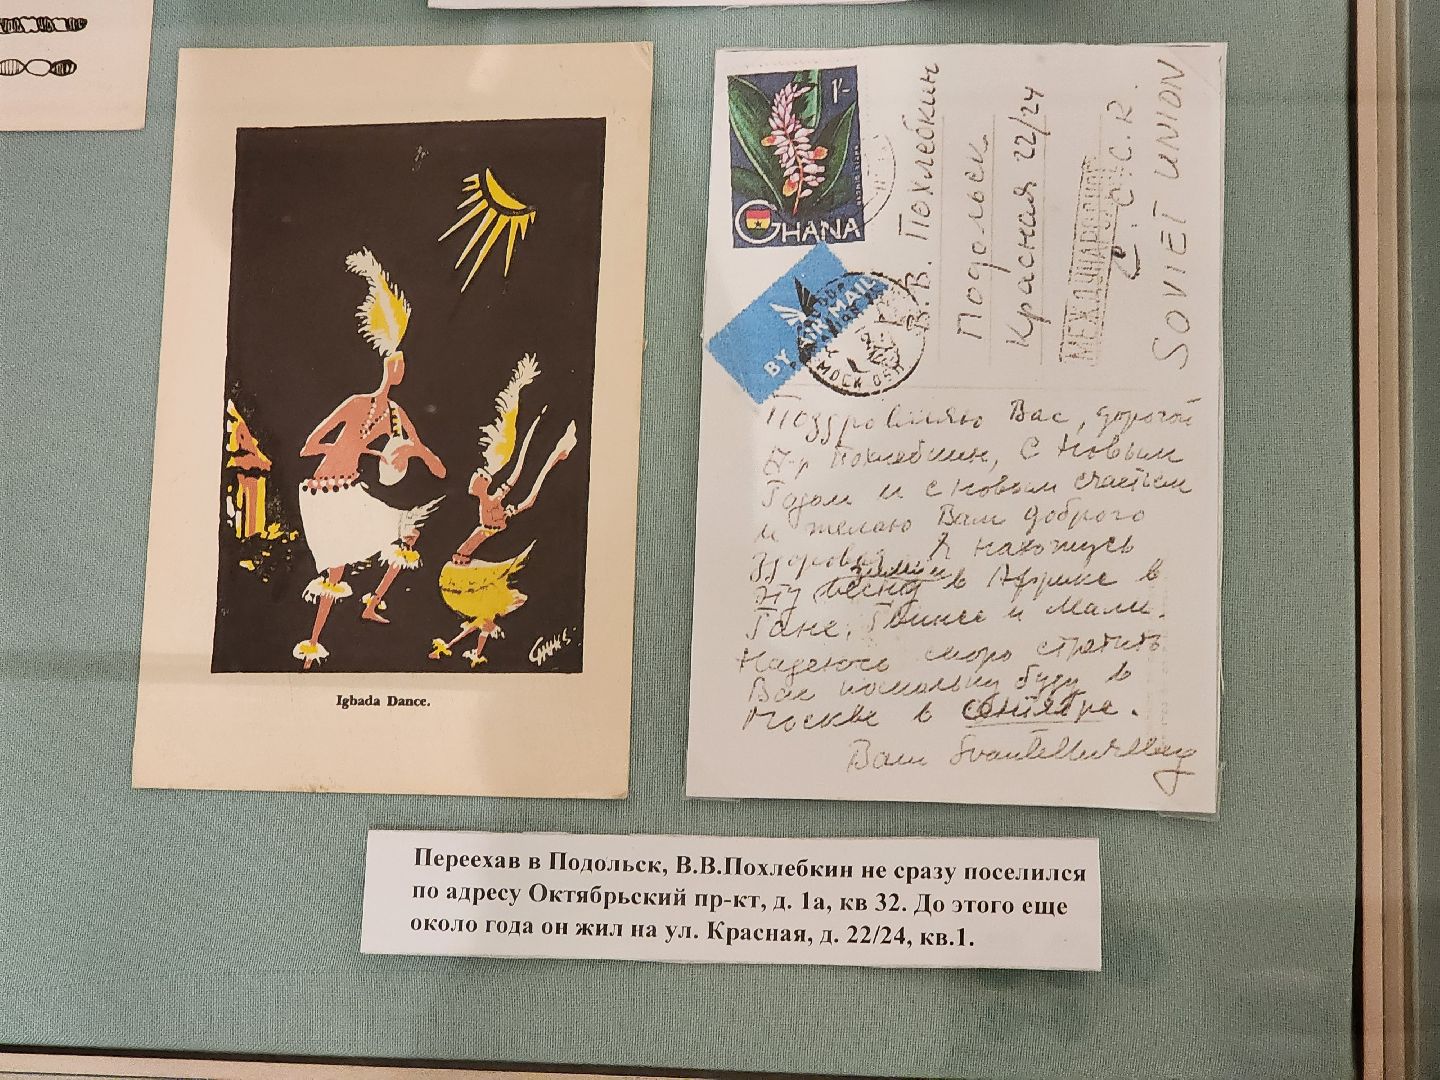 Igbada Dance.
1/-
GHANA
BY AIR MAIL
МОСК ОБЛ
В. В. Похлебкин
Подольск
Красная 22/24
МЕЖДУНАРОДНОЕ
С.С.С.R.
SOVIET UNION
Поздравляю Вас, дорогой
Похлебкин, с Новым
Годом и с новым счастьем
и желаю Вам доброго
здоровья. Я нахожусь
эту весну зимой в Африке в
Гане, Гвинее и Мали.
Надеюсь скоро
Вас поскольку буду в
Москве в сентябре.
Ваш
Переехав в Подольск, В.В.Похлебкин не сразу поселился
по адресу Октябрьский пр-кт, д. 1а, кв 32. До этого еще
около года он жил на ул. Красная, д. 22/24, кв.1.